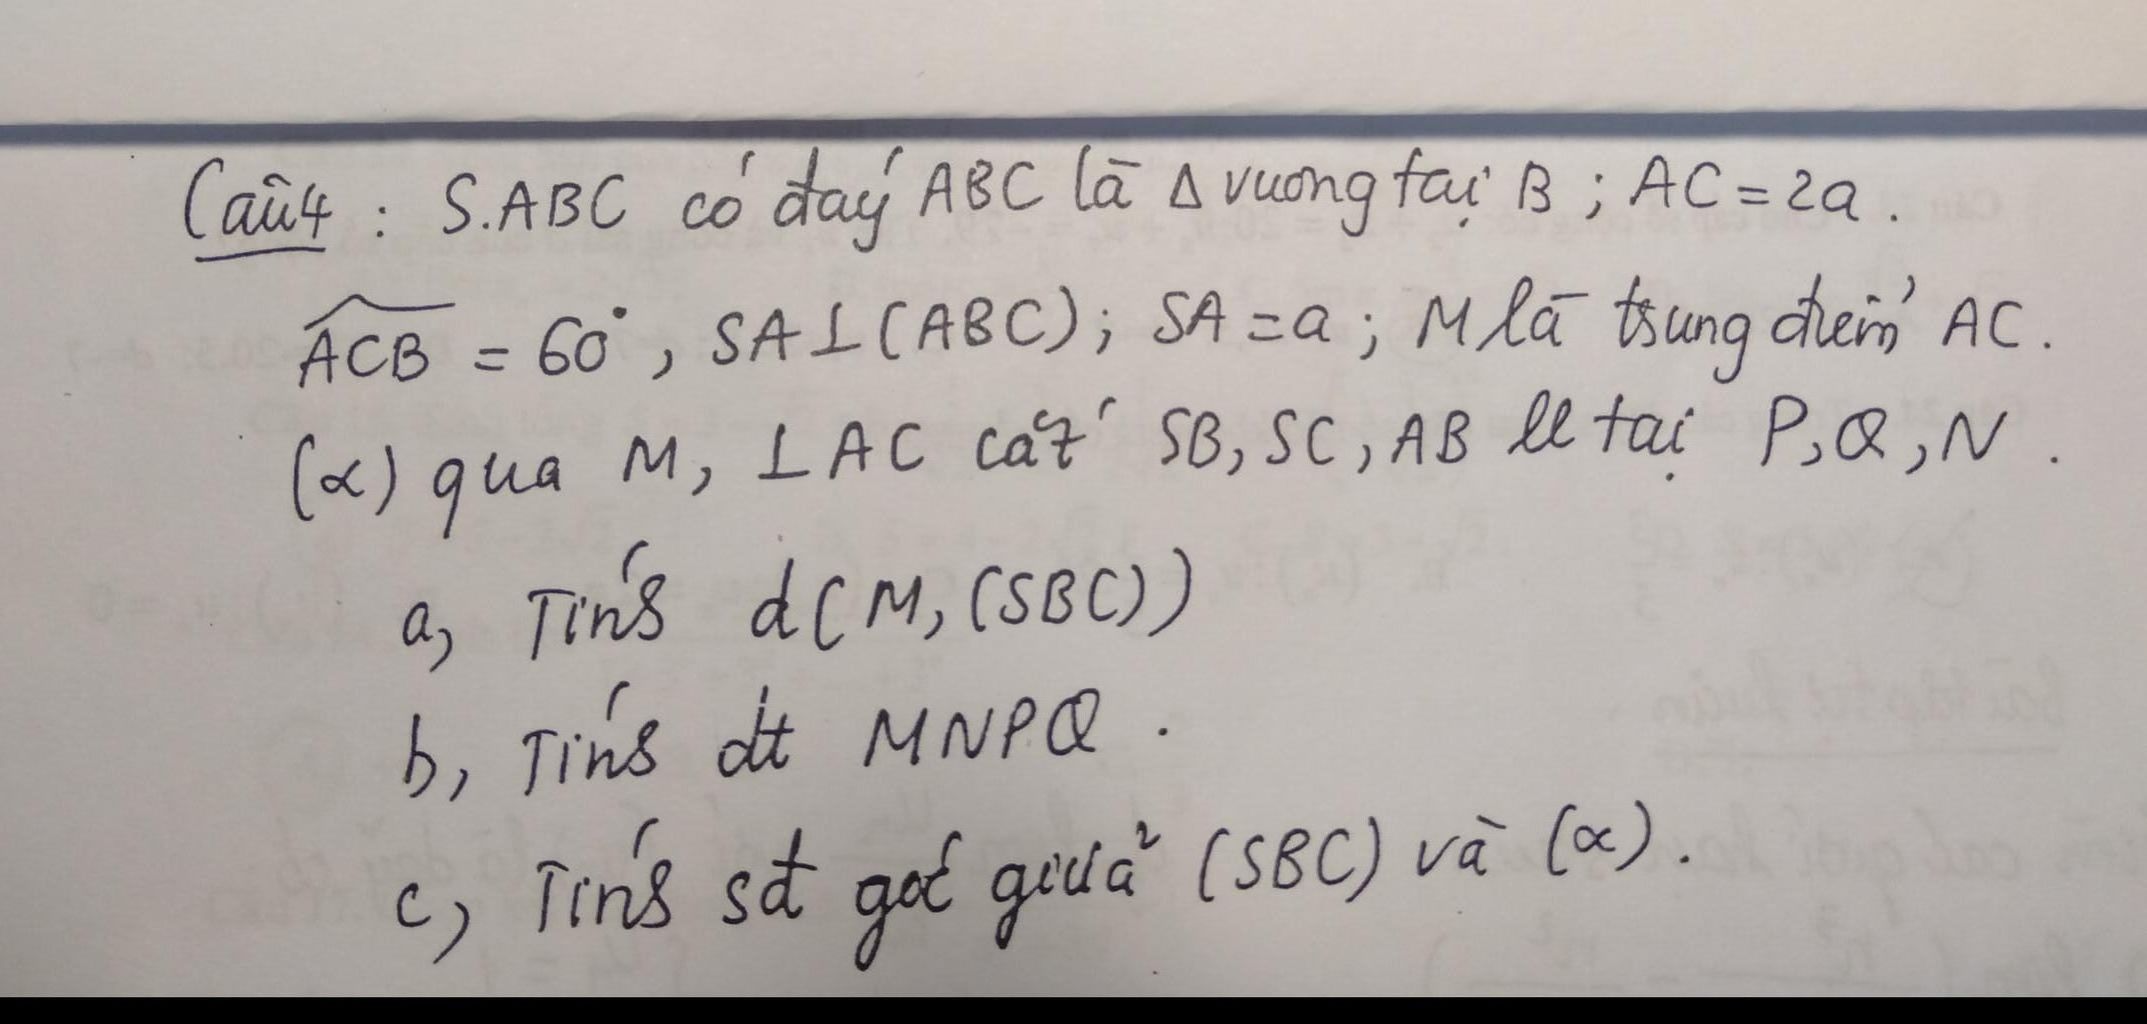 Câu 4 : S.ABC có đáy ABC là Δ vuông tại B ; AC = 2a .
ACB = 60°, SA⊥(ABC); SA = a ; M là trung điểm AC .
(α) qua M, ⊥ AC cắt SB, SC, AB ll tại P, Q, N .
a, Tính d(M, (SBC))
b, Tính dt MNPQ .
c, Tính sđ góc giữa (SBC) và (α) .